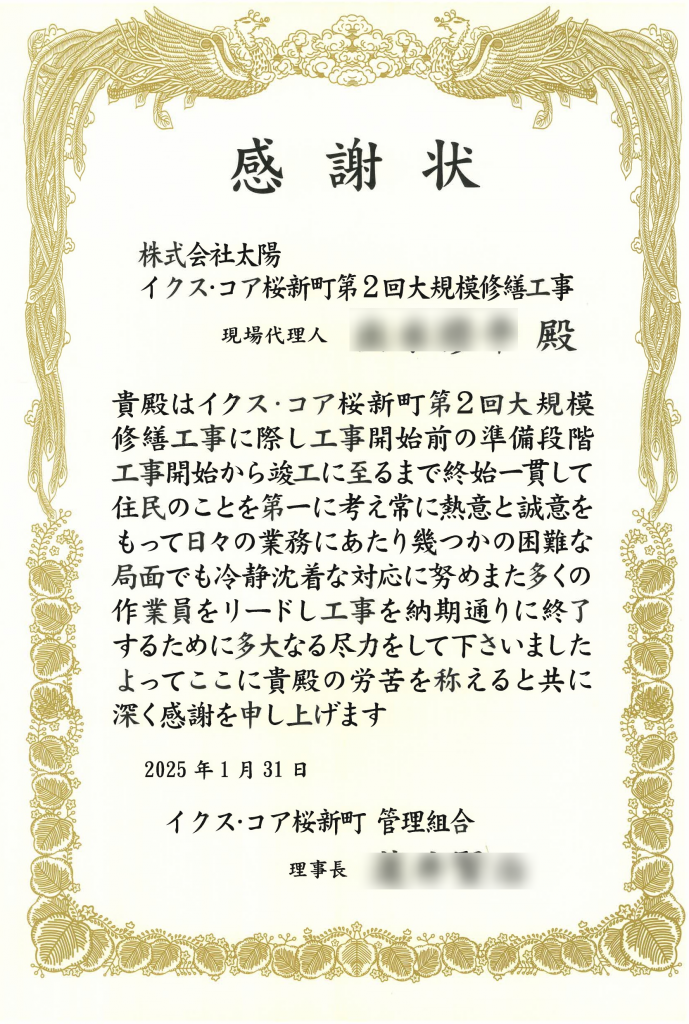 感謝状
株式会社太陽
イクス・コア桜新町第2回大規模修繕工事
現場代理人 殿
貴殿はイクス・コア桜新町第2回大規模
修繕工事に際し工事開始前の準備段階
工事開始から竣工に至るまで終始一貫して
住民のことを第一に考え常に熱意と誠意を
もって日々の業務にあたり幾つかの困難な
局面でも冷静沈着な対応に努めまた多くの
作業員をリードし工事を納期通りに終了
するために多大なる尽力をして下さいました
よってここに貴殿の労苦を称えると共に
深く感謝を申し上げます
2025年1月31日
イクス・コア桜新町 管理組合
理事長